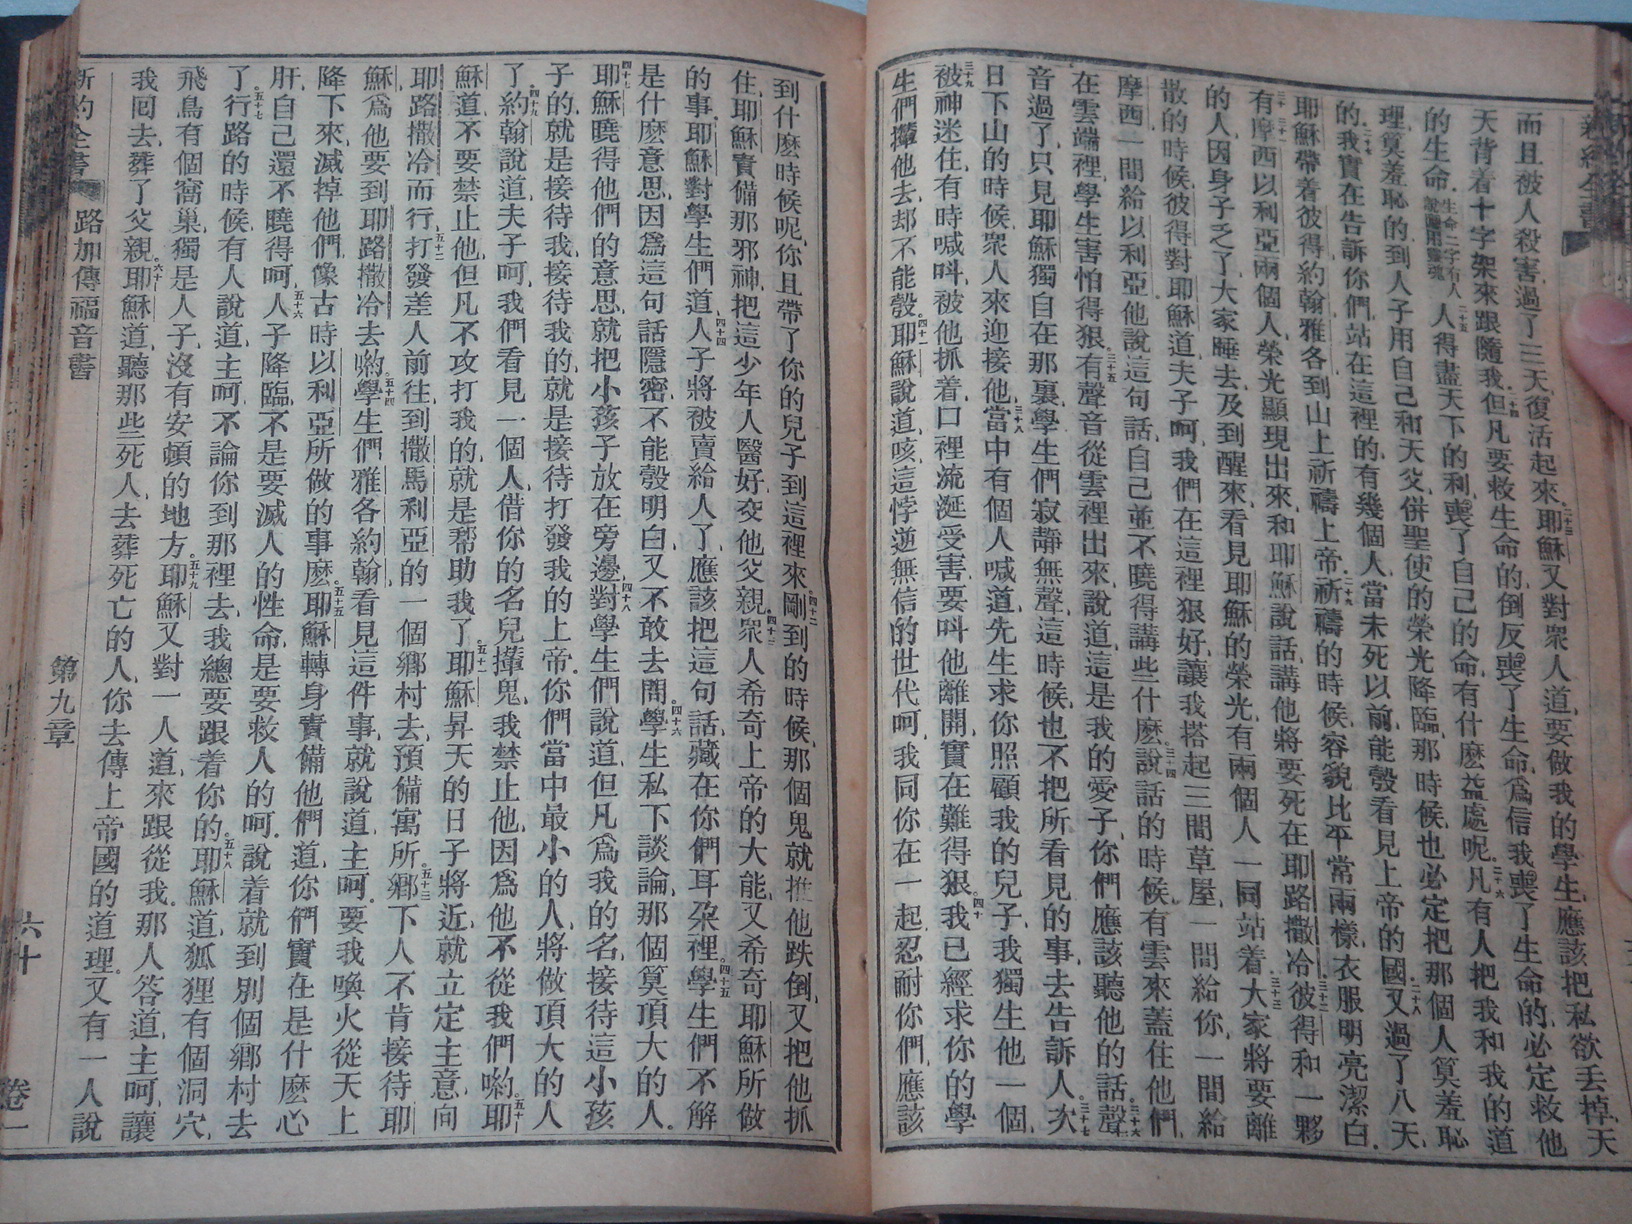 而且被人殺害過了三天復活起來二十三耶穌又對眾人道要做我的學生應該把私欲丟掉天
天背着十字架來跟隨我二十四但凡要救生命的倒反喪了生命為信我喪了生命的必定救他
的生命生命二字有人說圖用靈魂二十五人得盡天下的利喪了自己的命有什麼益處呢二十六凡有人把我和我的道
理算羞恥的到人子用自己和天父併聖使的榮光降臨那時候也必定把那個人算羞恥
的二十七我實在告訴你們站在這裡的有幾個人當未死以前能彀看見上帝的國二十八又過了八天
耶穌帶着彼得約翰雅各到山上祈禱上帝二十九祈禱的時候容貌比平常兩樣衣服明亮潔白
三十有三十一摩西以利亞兩個人榮光顯現出來和耶穌說話講他將要死在耶路撒冷三十二彼得和一夥
的人因身子乏了大家睡去及到醒來看見耶穌的榮光有兩個人一同站着三十三大家將要離
散的時候彼得對耶穌道夫子呵我們在這裡狠好讓我搭起三間草屋一間給你一間給
摩西一間給以利亞他說這句話自己並不曉得講些什麼三十四說話的時候有雲來蓋住他們
在雲端裡學生害怕得狠三十五有聲音從雲裡出來說道這是我的愛子你們應該聽他的話三十六聲
音過了只見耶穌獨自在那裏學生們寂靜無聲這時候也不把所看見的事去告訴人三十七次
日下山的時候眾人來迎接他三十八當中有個人喊道先生求你照顧我的兒子我獨生他一個
三十九被神迷住有時喊叫被他抓着口裡流涎受害要叫他離開實在難得狠四十我已經求你的學
生們攆他去却不能彀四十一耶穌說道咳這悖逆無信的世代呵我同你在一起忍耐你們應該
到什麼時候呢你且帶了你的兒子到這裡來四十二剛到的時候那個鬼就推他跌倒又把他抓
住耶穌責備那邪神把這少年人醫好交他父親四十三眾人希奇上帝的大能又希奇耶穌所做
的事耶穌對學生們道四十四人子將被賣給人了應該把這句話藏在你們耳朵裡四十五學生們不解
是什麼意思因為這句話隱密不能彀明白又不敢去問四十六學生私下談論那個算頂大的人
四十七耶穌曉得他們的意思就把小孩子放在旁邊四十八對學生們說道但凡為我的名接待這小孩
子的就是接待我接待我的就是接待打發我的上帝你們當中最小的人將做頂大的人
了四十九約翰說道夫子呵我們看見一個人借你的名兒攆鬼我禁止他因為他不從我們喲五十耶
穌道不要禁止他但凡不攻打我的就是幫助我了五十一耶穌昇天的日子將近就立定主意向
耶路撒冷而行五十二打發差人前往到撒馬利亞的一個鄉村去預備寓所五十三鄉下人不肯接待耶
穌為他要到耶路撒冷去喲五十四學生們雅各約翰看見這件事就說道主呵要我喚火從天上
降下來滅掉他們像古時以利亞所做的事麼五十五耶穌轉身責備他們道你們實在是什麼心
肝自己還不曉得呵五十六人子降臨不是要滅人的性命是要救人的呵說着就到別個鄉村去
了五十七行路的時候有人說道主呵不論你到那裡去我總要跟着你的五十八耶穌道狐狸有個洞穴
飛鳥有個窩巢獨是人子沒有安頓的地方五十九耶穌又對一人道來跟從我那人答道主呵讓
我囘去葬了父親六十耶穌道聽那些死人去葬死亡的人你去傳上帝國的道理又有一人說
新約全書 路加傳福音書 第九章 六十 卷一